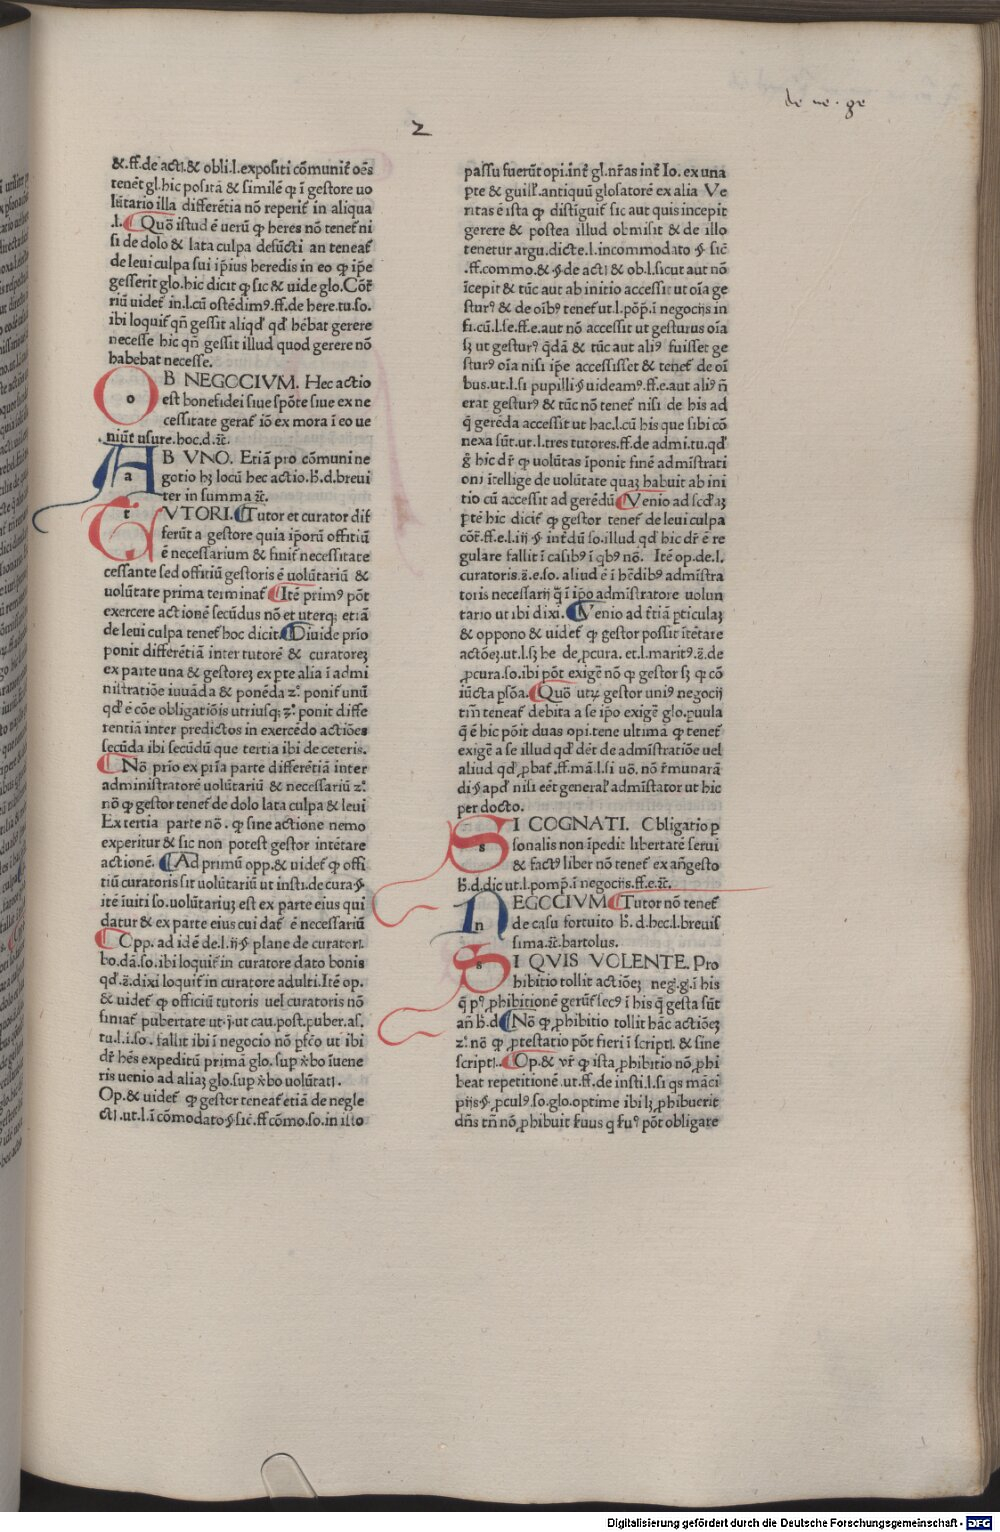 de ne. ge
2
&.ff.de acti.& obli.l.expositi cōmunit᷑ oēs
tenet᷑ gl.hic positā & similē qꝫ ī gestore uo
lūtario illa differētia nō reperit᷑ in aliqua
.l. Quō istud ē uerū qꝫ heres nō tenet᷑ ni
si de dolo & lata culpa defūcti an teneat᷑
de leui culpa sui ip̄ius heredis in eo qꝫ ip̄e
gesserit glo.hic dicit qꝫ sic & uide glo.Cōt᷑
riū uidet᷑ in.l.cū ostēdimꝰ.ff.de here.tu.so.
ibi loquit᷑ qn̄ gessit aliqd᷑ qd᷑ hēbat gerere
necesse hic qn̄ gessit illud quod gerere nō
habebat necesse.
OB NEGOCIVM. Hec actio
est bonefidei siue spōte siue ex ne
cessitate gerat᷑ iō ex mora ī eo ue
niūt usure.hoc.d.ı̄t.
AB VNO. Etiā pro cōmuni ne
gotio hꝫ locū hec actio.h̄.d.breui
ter in summa ı̄t.
TVTORI. Tutor et curator dif
ferūt a gestore quia ip̄orū offitiū
ē necessarium & finit᷑ necessitate
cessante sed offitiū gestoris ē uolūtariū &
uolūtate prima terminat᷑ Itē primꝰ pōt
exercere actionē secūdus nō et uterqꝫ etiā
de leui culpa tenet᷑ hoc dicit. Diuide prīo
ponit differētiā inter tutorē & curatoreꝫ
ex parte una & gestoreꝫ ex pte alia ī admi
nistratiōe iuuāda & ponēda zͦ. ponit unū
qd᷑ ē cōe obligatiōis utriusqꝫ zͦ. ponit diffe
rentiā inter predictos in exercēdo actiōes
secūda ibi secūdū que tertia ibi de ceteris.
Nō prīo ex prīa parte differētiā inter
administratorē uolūtariū & necessariū zͦ.
nō qꝫ gestor tenet᷑ de dolo lata culpa & leui
Ex tertia parte nō. qꝫ sine actione nemo
experitur & sic non potest gestor intētare
actionē. Ad primū opp.& uidet᷑ qꝫ offi
tiū curatoris sit uolūtariū ut insti.de cura.§
itē inuiti so.uolūtariuꝫ est ex parte eius qui
datur & ex parte eius cui dat᷑ ē necessariū
Opp. ad idē de.l.iij § plane de curatori.
bo.dā.so.ibi loquit᷑ in curatore dato bonis
qd᷑.z̄.dixi loquit᷑ in curatore adulti.Itē op.
& uidet᷑ qꝫ officiū tutoris uel curatoris nō
finiat᷑ pubertate ut.j.ut cau.post.puber.as.
tu.l.i.so. fallit ibi ī negocio nō pfc̄o ut ibi
dr̄ hēs expeditū primā glo.sup x̄bo iuene
ris uenio ad aliaꝫ glo.sup x̄bo uolūtati.
Op.& uidet᷑ qꝫ gestor teneat᷑ etiā de negle
cti.ut.l.ī cōmodato.§.sic̄.ff cōmo.so.in illo
passu fuerūt opi.int᷑ gl.nr̄as int᷑ Io. ex una
pte & guill᷑.antiquū glosatorē ex alia Ve
ritas ē ista qꝫ distiguit᷑ sic aut quis incepit
gerere & postea illud obmisit & de illo
tenetur argu.dicte.l.incommodato § sic̄
.ff.commo.& § de acti & ob.l.sicut aut nō
īcepit & tūc aut ab initio accessit ut oīa ge
sturꝰ & de oībꝰ tenet᷑ ut.l.pōp̄.ī negocijs in
fi.cū.l.se.ff.e.aut nō accessit ut gesturus oīa
sꝫ ut gesturꝰ q̄dā & tūc aut aliꝰ fuisset ge
sturꝰ oīa nisi ipe accessisset & tenet᷑ de oī
bus.ut.l.si pupilli § uideamꝰ.ff.e.aut aliꝰ n̄
erat gesturꝰ & tūc nō tenet᷑ nisi de his ad
q̄ gerēda accessit ut hac.l.cū his que sibi cō
nexa sūt.ut.l.tres tutores.ff.de admi.tu.qd᷑
g̊ hic dr̄ qꝫ uolūtas īponit finē admīstrati
oni ītellige de uolūtate quaꝫ habuit ab ini
tio cū accessit ad gerēdū Venio ad scd᷑aꝫ
ꝑtē hic dicit᷑ qꝫ gestor tenet᷑ de leui culpa
cōt᷑.ff.e.l.iij § int᷑dū so.illud qd᷑ hic dr̄ ē re
gulare fallit ī casibꝰ ī qbꝰ nō. Itē op.de.l.
curatoris.z̄.e.so. aliud ē ī hēdibꝰ admīstra
toris necessarij q̄ ī ip̄o admīstratore uolun
tario ut ibi dixi. Venio ad t᷑tiā ꝑticulaꝫ
& oppono & uidet᷑ qꝫ gestor possit ītētare
actōeꝫ.ut.l.sꝫ he de ꝓcura. et.l.maritꝰ.z̄.de
ꝓcura.so.ibi pōt exigē nō qꝫ gestor sꝫ qꝫ cō
iūcta ꝑsōa. Quō utꝝ gestor uniꝰ negocij
trīn teneat᷑ debita a se ip̄o exigē glo.ꝑuula
q̄ ē hic pōit duas opi.tene ultimā qꝫ tenet᷑
exigē a se illud qd᷑ dēt de admīstratiōe uel
aliud qd᷑ ꝓbat᷑.ff.mā.l.si uō. nō r̄munarā
di § apd᷑ nisi eēt general᷑ admīstator ut hic
per docto.
SI COGNATI. Obligatio p
sonalis non īpedit libertatē serui
& factꝰ liber nō tenet᷑ ex an̄gesto
h̄.d.dic ut.l.pomp̄.ī negociis.ff.e.ı̄t.
NEGOCIVM Tutor nō tenet᷑
de casu fortuito h̄. d.hec.l.breuis
sima.ı̄t.bartolus.
SI QVIS VOLENTE. Pro
hibitio tollit actiōeꝫ neg̣.g.ī his
q̄ pꝰ ꝓhibitionē gerūt᷑ secꝰ ī his q̄ gesta sūt
an̄ h̄.d Nō qꝫ ꝓhibitio tollit hāc actiōeꝫ
zͦ. nō qꝫ ꝓtestatio pōt fieri ī script. & sine
script.. Op.& vr̄ qꝫ ista ꝓhibitio nō ꝓhi
beat repetitionē.ut.ff.de insti.l.si qs māci
pijs §.ꝓculꝰ.so.glo.optime ibi lꝫ ꝓhibuerit
dn̄s tn̄ nō ꝓhibuit ẜuus q ẜuꝰ pōt obligare
Digitalisierung gefördert durch die Deutsche Forschungsgemeinschaft - DFG